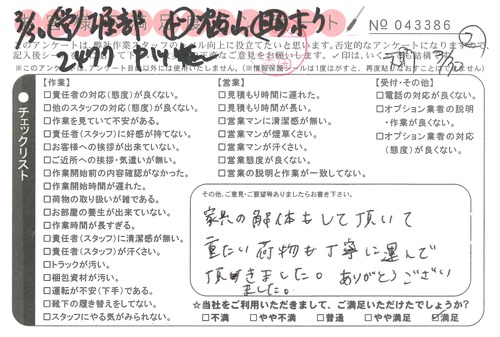 № 043386
このアンケートは、弊社作業スタッフのレベル向上に役立てたいと思います。否定的なアンケートになりますので、
記入後シー
チェックリスト
【作業】
□責任者の対応(態度)が良くない。
□他のスタッフの対応(態度)が良くない。
□作業を見ていて不安がある。
□責任者(スタッフ)に好感が持てない。
□お客様への挨拶が出来ていない。
□ご近所への挨拶・気遣いが無い。
□作業開始前の内容確認がなかった。
□作業開始時間が遅れた。
□荷物の取り扱いが雑である。
□お部屋の養生が出来ていない。
□作業時間が長すぎる。
□責任者(スタッフ)に清潔感が無い。
□責任者(スタッフ)が汗くさい。
□トラックが汚い。
□梱包資材が汚い。
□運転が不安(下手)である。
□靴下の履き替えをしてない。
□スタッフにやる気がみられない。
【営業】
□見積もり時間に遅れた。
□見積もり時間が長い。
□営業マンに清潔感が無い。
□営業マンが煙草くさい。
□営業マンが汗くさい。
□営業態度が良くない。
□営業の説明と作業が一致してない。
【受付・その他】
□電話の対応が良くない。
□オプション業者の説明
・作業が良くない。
□オプション業者の対応
(態度)が良くない。
その他、ご意見・ご要望等ありましたらお書き下さい。
家具の解体もして頂いて
重たい荷物も丁寧に運んで
頂きました。ありがとうござい
ました。
☆当社をご利用いただきまして、ご満足いただけたでしょうか?
□不満 □やや不満 □普通 □やや満足 ☑満足